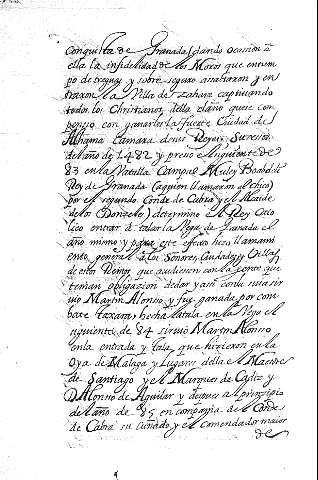 Conquista de Granada, dando ocasion a
ella la infidelidad de los Moros que en tiem
po de treguas y sobre seguro asaltaron y en
traron la Villa de Zahara captivando
todos los Christianos della el año que se com
penso con ganarles la fuerte Ciudad de
Alhama Camara de sus Reyes Suresos
del año de 1482 y preso el siguiente de
83 en la Batalla Campal Muley Baabdi
Rey de Granada (a quien llamaron el chico)
por el segundo Conde de Cabra y el Alcaide
de los Donzeles) determino el Rey Cato
lico entrar a talar la Vega de Granada el
año mismo y para este effecto hizo llamami
ento general a los Señores, Ciudades, y Villas
de estos Reinos que acudiesen con la gente que
tenian obligazion de dar y asi con la suya sir
vio Martin Alonso y fue ganada por com
bate Taxara, hecha la tala en la Vega el
siguiente de 84 sirvio Martin Alonso
en la entrada y tala que hizieron en la
Oya de Malaga y Lugares della el Maestre
de Santiago y el Marques de Caliz y
D. Alonso de Aguilar y despues al principio
del año de 85 en compañia del Conde
de Cabra su cuñado y el comendador maior
de